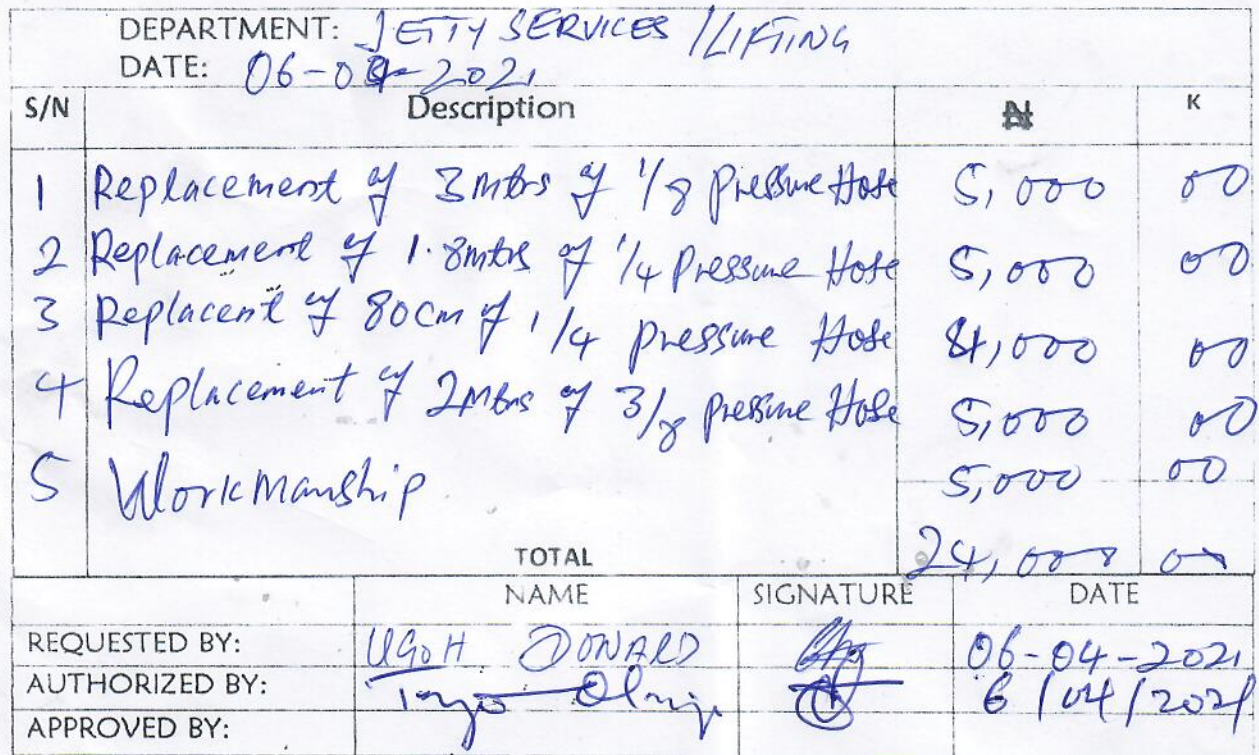 DEPARTMENT: JETTY SERVICES /LIFTING
DATE: 06-04-2021
S/N Description ₦ K
1 Replacement of 3mtrs of 1/8 pressure Hose 5,000 00
2 Replacement of 1.8mtrs of 1/4 Pressure Hose 5,000 00
3 Replacent of 80cm of 1/4 pressure Hose 4,000 00
4 Replacement of 2mtrs of 3/8 pressure Hose 5,000 00
5 Workmanship 5,000 00
TOTAL 24,000 00
NAME SIGNATURE DATE
REQUESTED BY: UGOH DONALD 06-04-2021
AUTHORIZED BY: 6/04/2021
APPROVED BY: